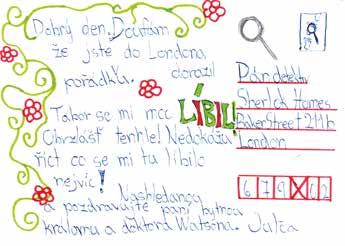 Dobrý den. Doufám
že jste do Londona
dorazil
pořádku.
Tábor se mi moc LÍBIL!
Obvzlášť tenhle! Nedokážu
říct co se mi tu líbilo
nejvíc!
Nashledanou
a pozdravujte paní bytnou
královnu a doktora Watsona. Julča
Pan detektiv
Sherlok Homes
Baker Street 211b
London
6 7 9 0 2